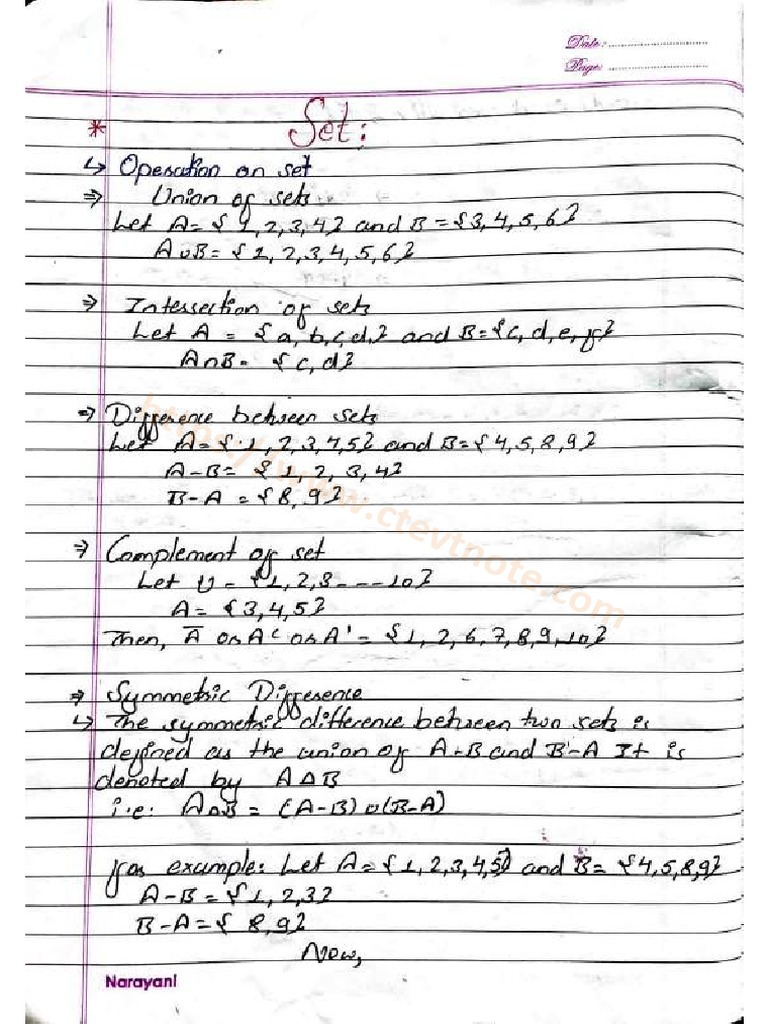 Date:
Page:
* Set:
↳ Operation on set
⇒ Union of sets
Let A = {1, 2, 3, 4} and B = {3, 4, 5, 6}
A∪B = {1, 2, 3, 4, 5, 6}
⇒ Intersection of sets
Let A = {a, b, c, d,} and B = {c, d, e, f}
A∩B = {c, d}
⇒ Difference between sets
Let A = {1, 2, 3, 4, 5} and B = {4, 5, 8, 9}
A-B = {1, 2, 3, 4}
B-A = {8, 9}
https://www.ctevtnote.com
⇒ Complement of set
Let U = {1, 2, 3 - - - 10}
A = {3, 4, 5}
Then, A̅ or Aᶜ or A' = {1, 2, 6, 7, 8, 9, 10}
⇒ Symmetric Difference
↳ The symmetric difference between two sets is
defined as the union of A-B and B-A It is
denoted by A∆B
i.e: A∆B = (A-B)∪(B-A)
for example: Let A = {1, 2, 3, 4, 5} and B = {4, 5, 8, 9}
A-B = {1, 2, 3}
B-A = {8, 9}
Now,
Narayani